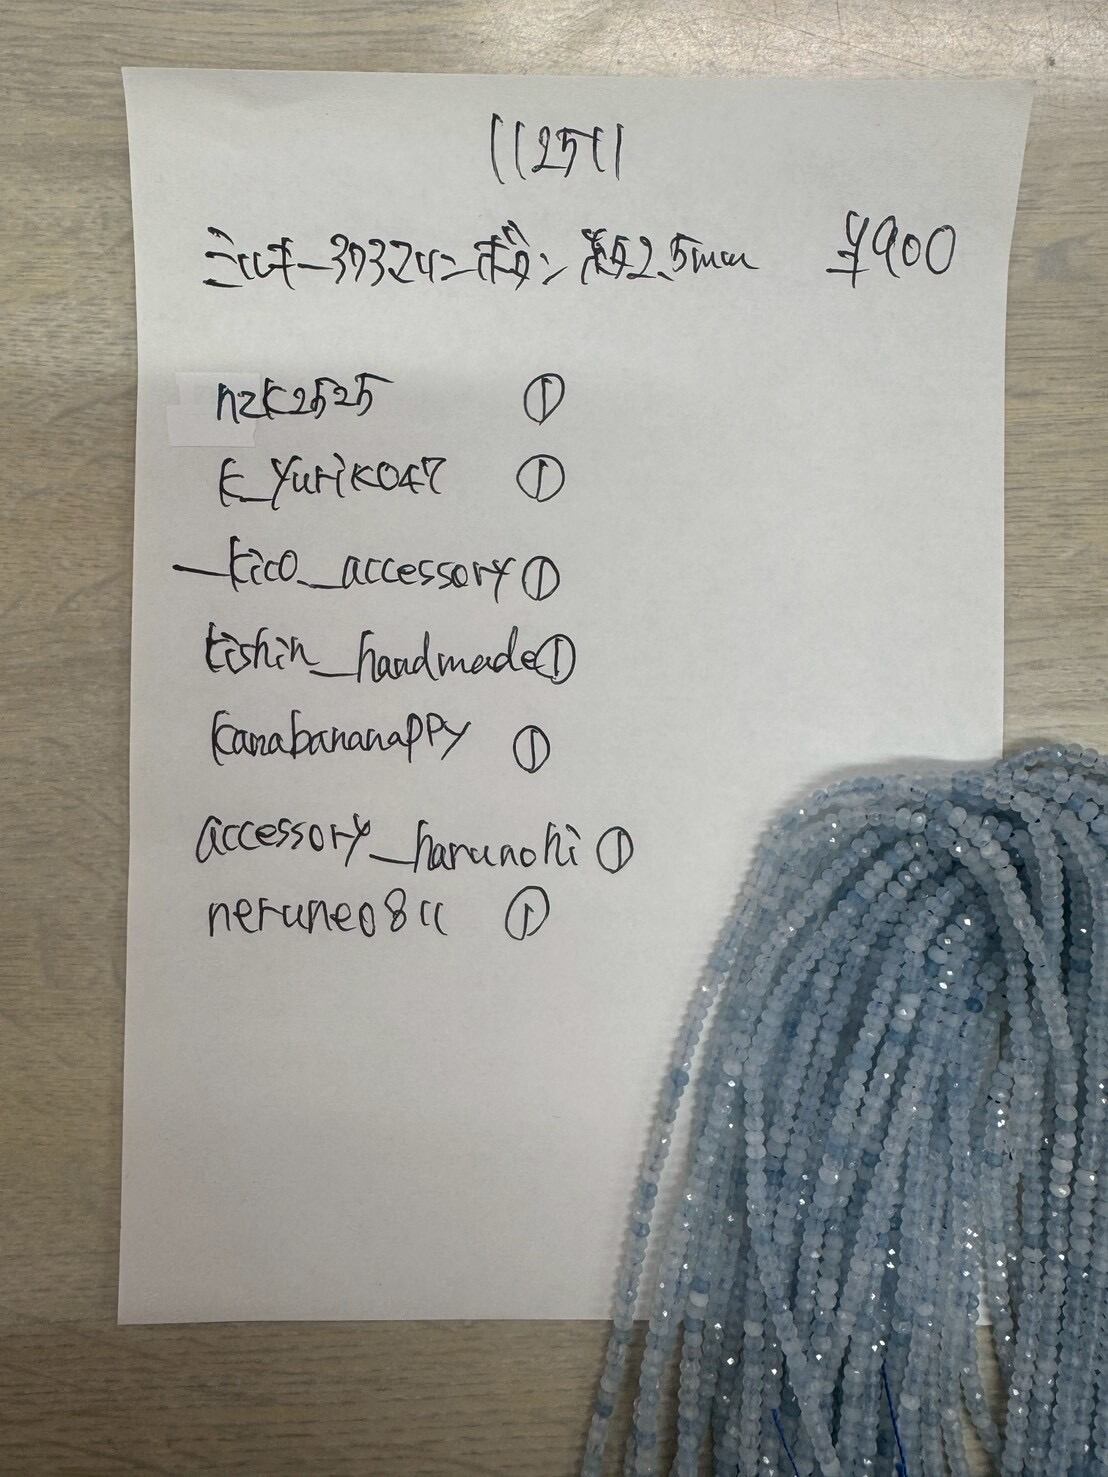 112511
ミルキーアクアマリンボタン 約2.5mm ¥900
nzk2525 ①
k_yuriko47 ①
_kico_accessory ①
kishin_handmade ①
kanabananappy ①
accessory_harunohi ①
nerune0811 ①